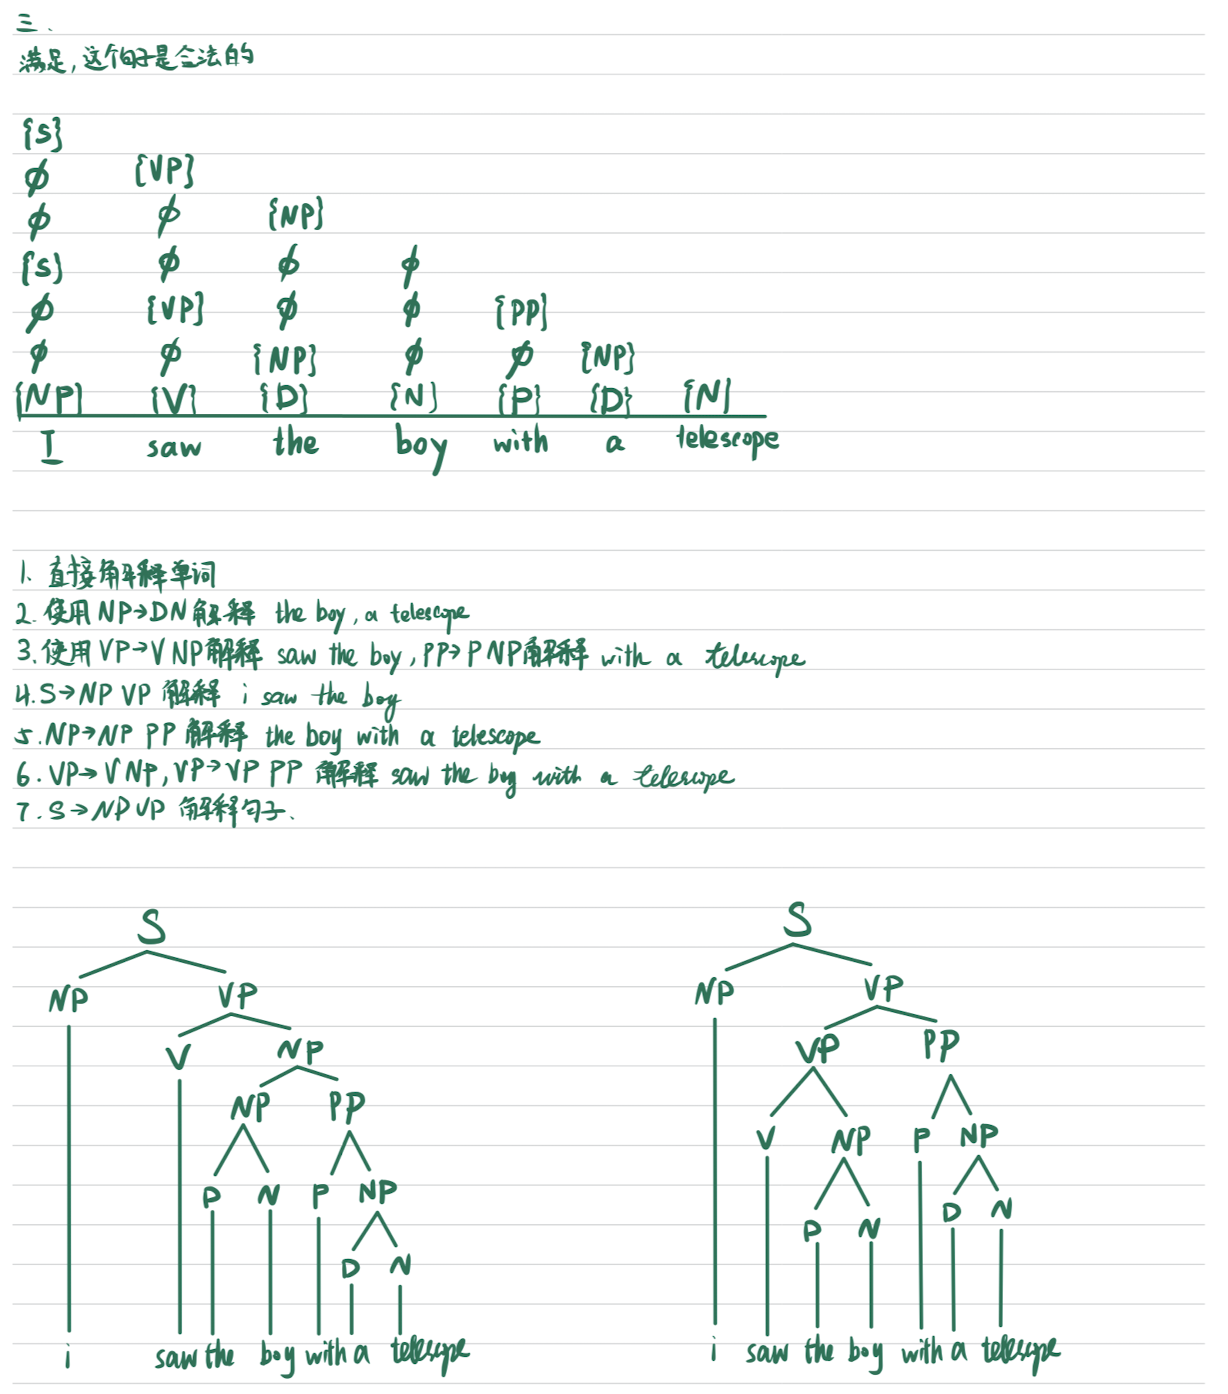 三.
满足,这个句子是合法的
{S}
ϕ {VP}
ϕ ϕ {NP}
{S} ϕ ϕ ϕ
ϕ {VP} ϕ ϕ {PP}
ϕ ϕ {NP} ϕ ϕ {NP}
{NP} {V} {D} {N} {P} {D} {N}
I saw the boy with a telescope
1. 直接解释单词
2. 使用NP→DN解释 the boy, a telescope
3. 使用VP→V NP解释 saw the boy, PP→P NP解释 with a telescope
4. S→NP VP 解释 i saw the boy
5. NP→NP PP 解释 the boy with a telescope
6. VP→V NP, VP→VP PP 解释 saw the boy with a telescope
7. S→NP VP 解释句子.
S
NP VP
V NP
NP PP
D N P NP
D N
i saw the boy with a telescope
S
NP VP
VP PP
V NP P NP
D N D N
i saw the boy with a telescope